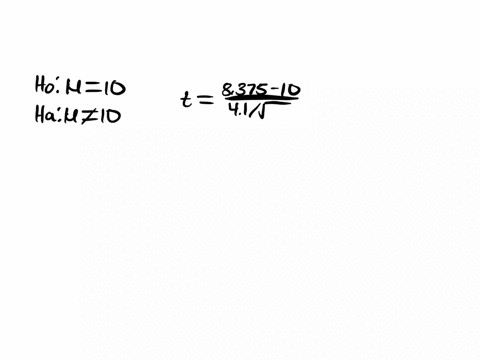 Ho: μ=10
Ha: μ≠10
t = 8.375-10
4.1/√